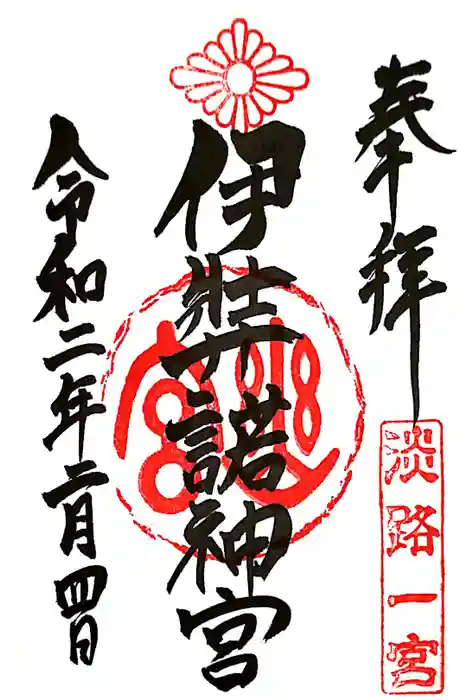 奉拝
淡路一宮
伊弉諾神宮
令和二年二月四日